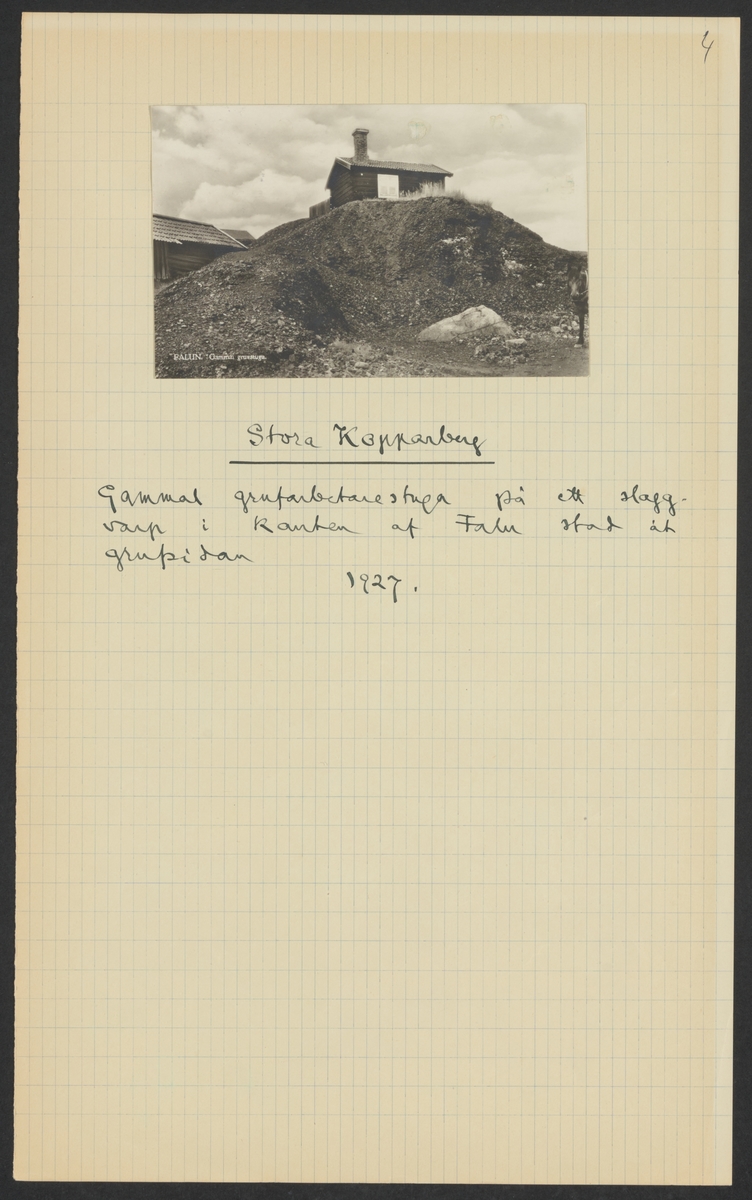 4
FALUN. Gammal gruvstuga.
Stora Kopparberg
Gammal grufarbetarestuga på ett slagg-
varp i kanten af Falu stad åt
grufsidan
1927.